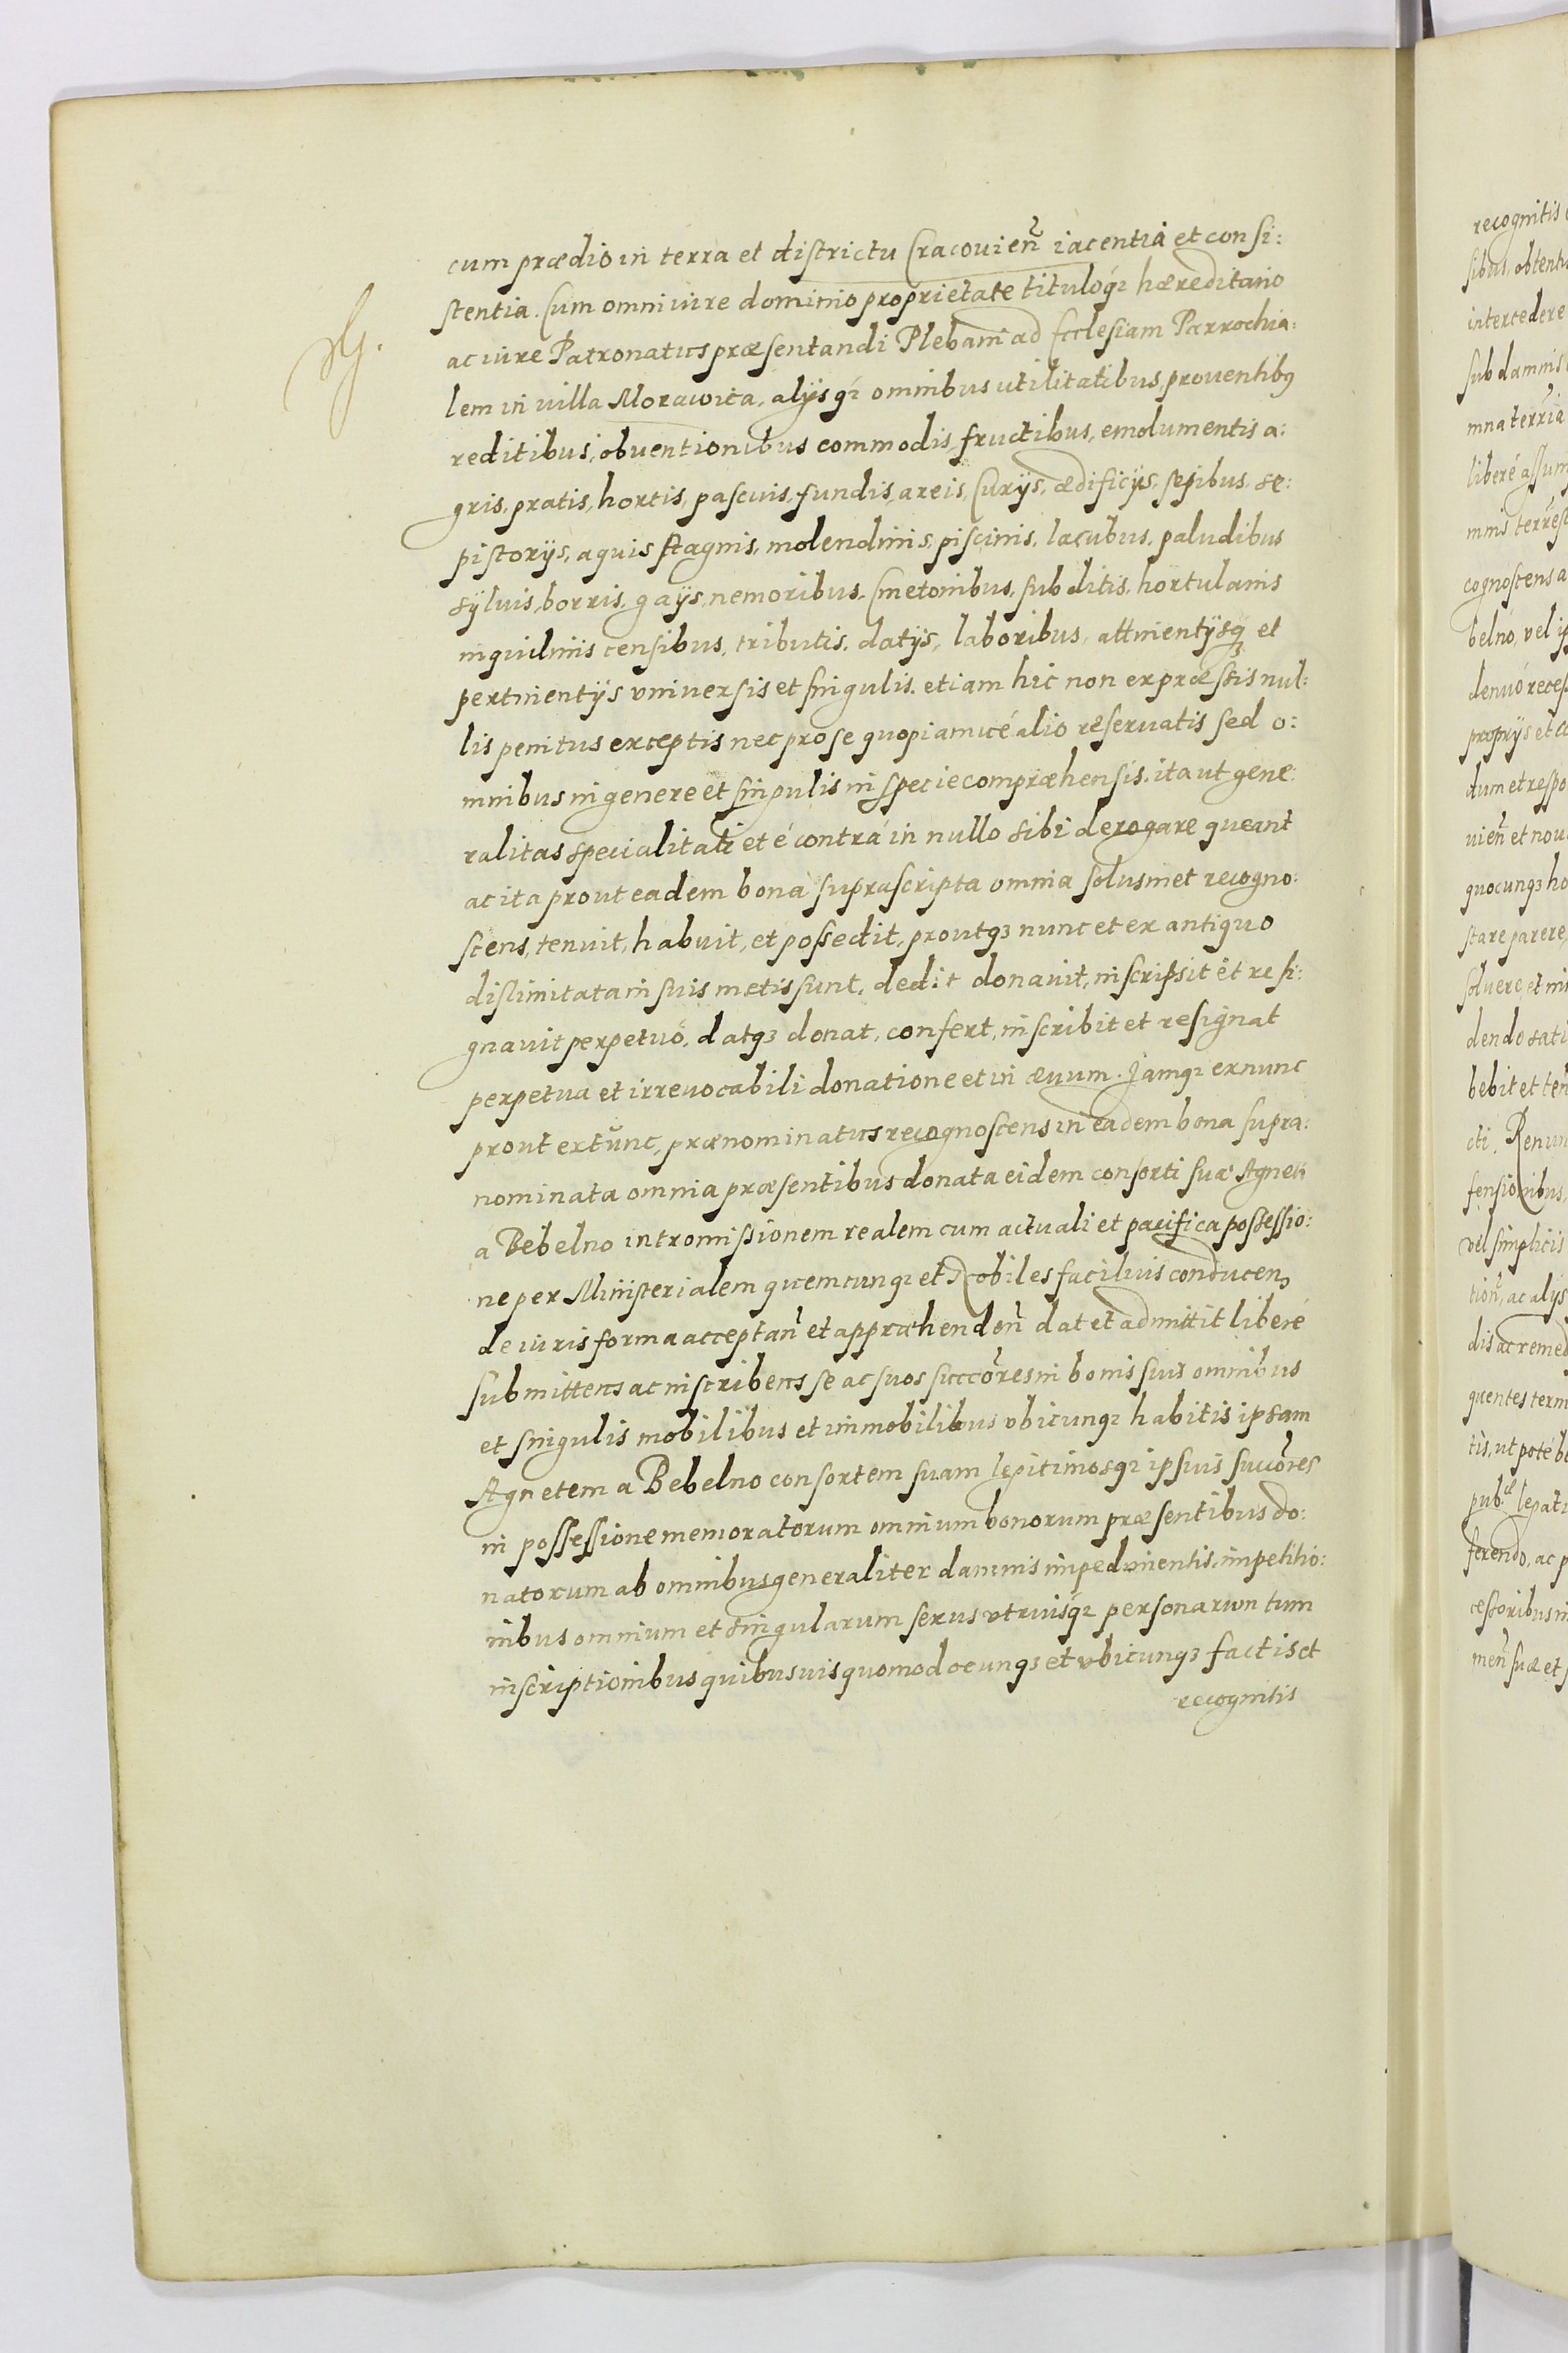 cum prædio in terra et districtu Cracouien̄ iacentia et consi:
stentia. Cum omni iure dominio proprietate tituloq₃ hæreditario
ac iure Patronatus præsentandi Plebani ad Ecclesiam Parrochia:
lem in villa Morawica, alÿsq₃ omnibus vtilitatibus, prouentibq
reditibus, obuentionibus commodis, fructibus, emolumentis a:
gris, pratis, hortis, pascuis, fundis, areis, Curÿs, ædificÿs, sepibus, se:
pistorÿs, aquis stagnis, molendinis, piscinis, lacubus, paludibus
sÿluis, borris, gaÿs, nemoribus, Cmetonibus, subditis, hortulanis
inquilinis censibus, tributis, datÿs, laboribus, attinentÿsq₃ et
pertinentÿs vniuersis et singulis, etiam hic non expræssis nul:
lis penitus exceptis nec pro se quopiamué alio reseruatis sed o:
mnibus in genere et singulis in specie compræhensis, ita ut gene:
ralitas specialitati et é contrá in nullo sibi derogare queant
ac ita prout eadem bona suprascripta omnia solusmet recogno:
scens, tenuit, habuit, et possedit, proutq₃ nunc et ex antiquo
dislimitata in suis metis sunt, dedit donauit, inscripsit et resi:
gnauit perpetuó, datq₃ donat, confert, inscribit et resignat
perpetua et irreuocabili donatione et in æuum. Jamq₃ exnunc
prout extunc, prænominatus recognoscens in eadem bona supra:
nominata omnia præsentibus donata eidem consorti suæ Agneti
a Bebelno intromissionem realem cum actuali et pacifica possessio:
ne per Ministerialem quemcunq₃ et Nobiles faciluis conducen₃
de iuris forma acceptan̄ et appræhenden̄ dat et admittit liberé
submittens ac inscribens se ac suos succōres in bonis suis omnibus
et singulis mobilibus et immobilibus vbicunq₃ habitis ipsam
Agnetem a Bebelno consortem suam legitimosq₃ ipsuis succōres
in possessione memoratorum omnium bonorum præsentibus do:
natorum ab omnibus generaliter damnis impedimentis, impetitio:
nibus omnium et singularum sexus vtriusq₃ personarum tum
inscriptionibus quibusuis quomodocunq₃ et vbicunq₃ factis et
recognitis
recognitis
sibus, obtent
intercedere
sub damnis
mna terria
liberé assum
mnis terrest
cognoscens a
belno, vel ip
denuó recess
proprÿs et
dum et respo
uien̄ et nou
quocunq₃ ho
stare parere,
soluere, et mi
dendo sati
bebit et ten̄
cti. Renun
fensionibus,
vel simplicis
tion̄, ac alÿs
dis ac remed
quentes term
tis, ut poté b
pub.ce legati
ferendo, ac p
cessoribus in
men̄ suæ et